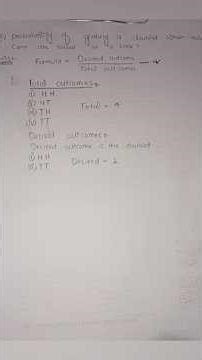 probability of getting a doublet when
Coin
Formula = Desired outcome
Total outcomes
Total outcomes
(i) HH
(ii) HT Total = 4
(iii) TH
(iv) TT
Desired outcomes
Desired outcome is the doublet
(i) HH
(ii) TT Desired = 2